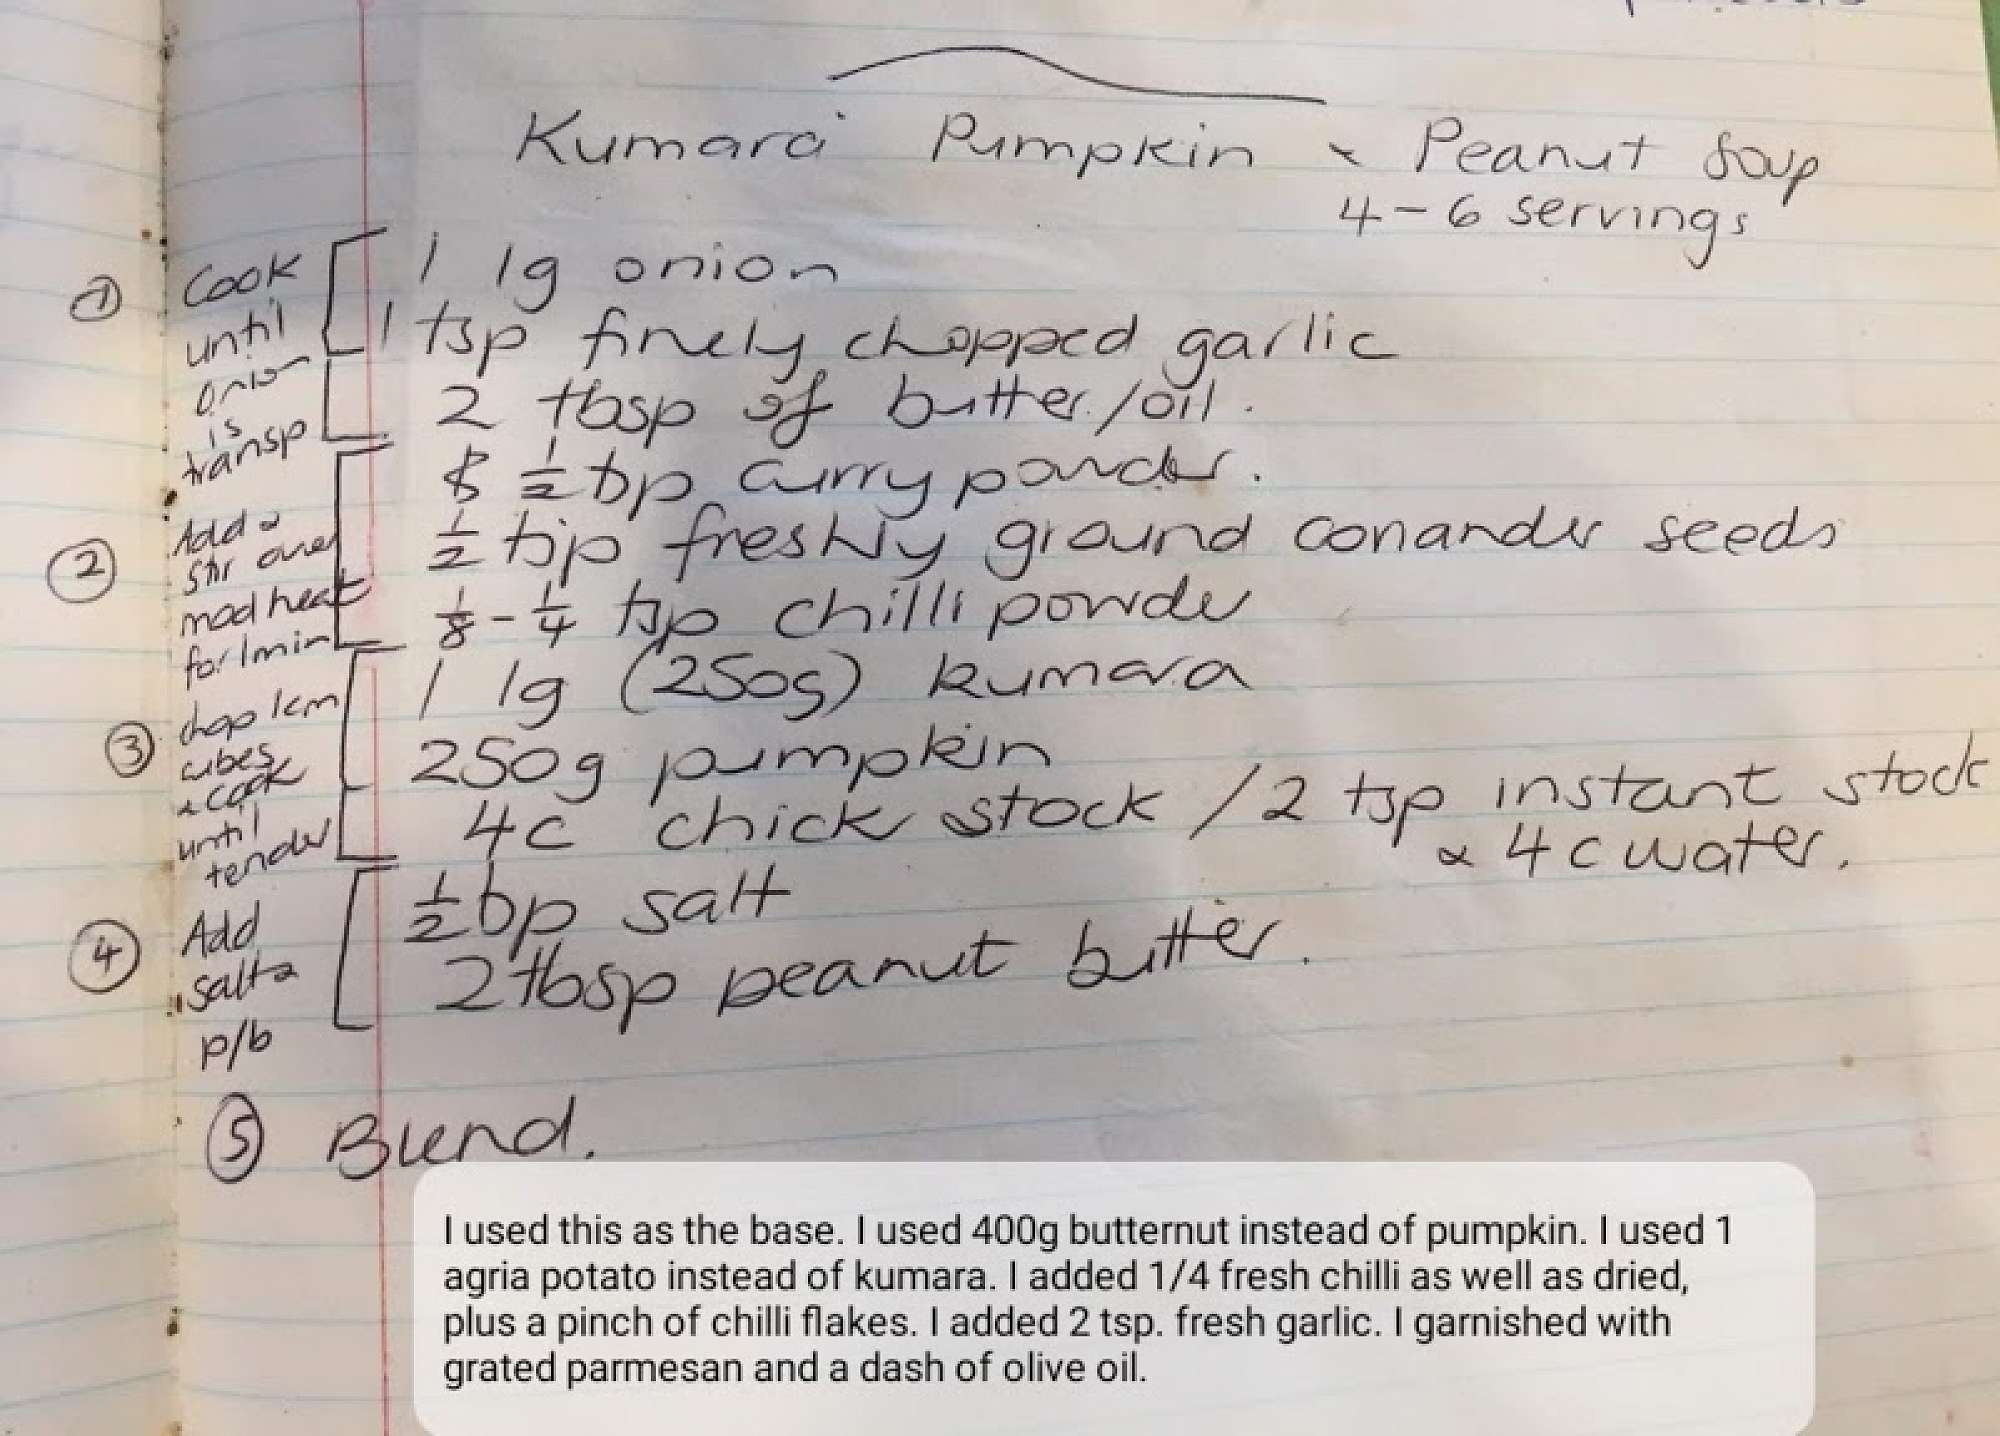 Kumara Pumpkin & Peanut Soup
4-6 servings
① Cook until onion is transp
1 lg onion
1 tsp finely chopped garlic
2 tbsp of butter/oil.
② Add & stir over mod heat for 1 min
½ tsp curry powder.
½ tsp freshly ground coriander seeds
⅛ - ¼ tsp chilli powder
③ chop 1cm cubes & cook until tender
1 lg (250g) kumara
250g pumpkin
4c chick stock / 2 tsp instant stock
& 4c water.
④ Add salt & p/b
½ tsp salt
2 tbsp peanut butter.
⑤ Blend.
I used this as the base. I used 400g butternut instead of pumpkin. I used 1
agria potato instead of kumara. I added 1/4 fresh chilli as well as dried,
plus a pinch of chilli flakes. I added 2 tsp. fresh garlic. I garnished with
grated parmesan and a dash of olive oil.